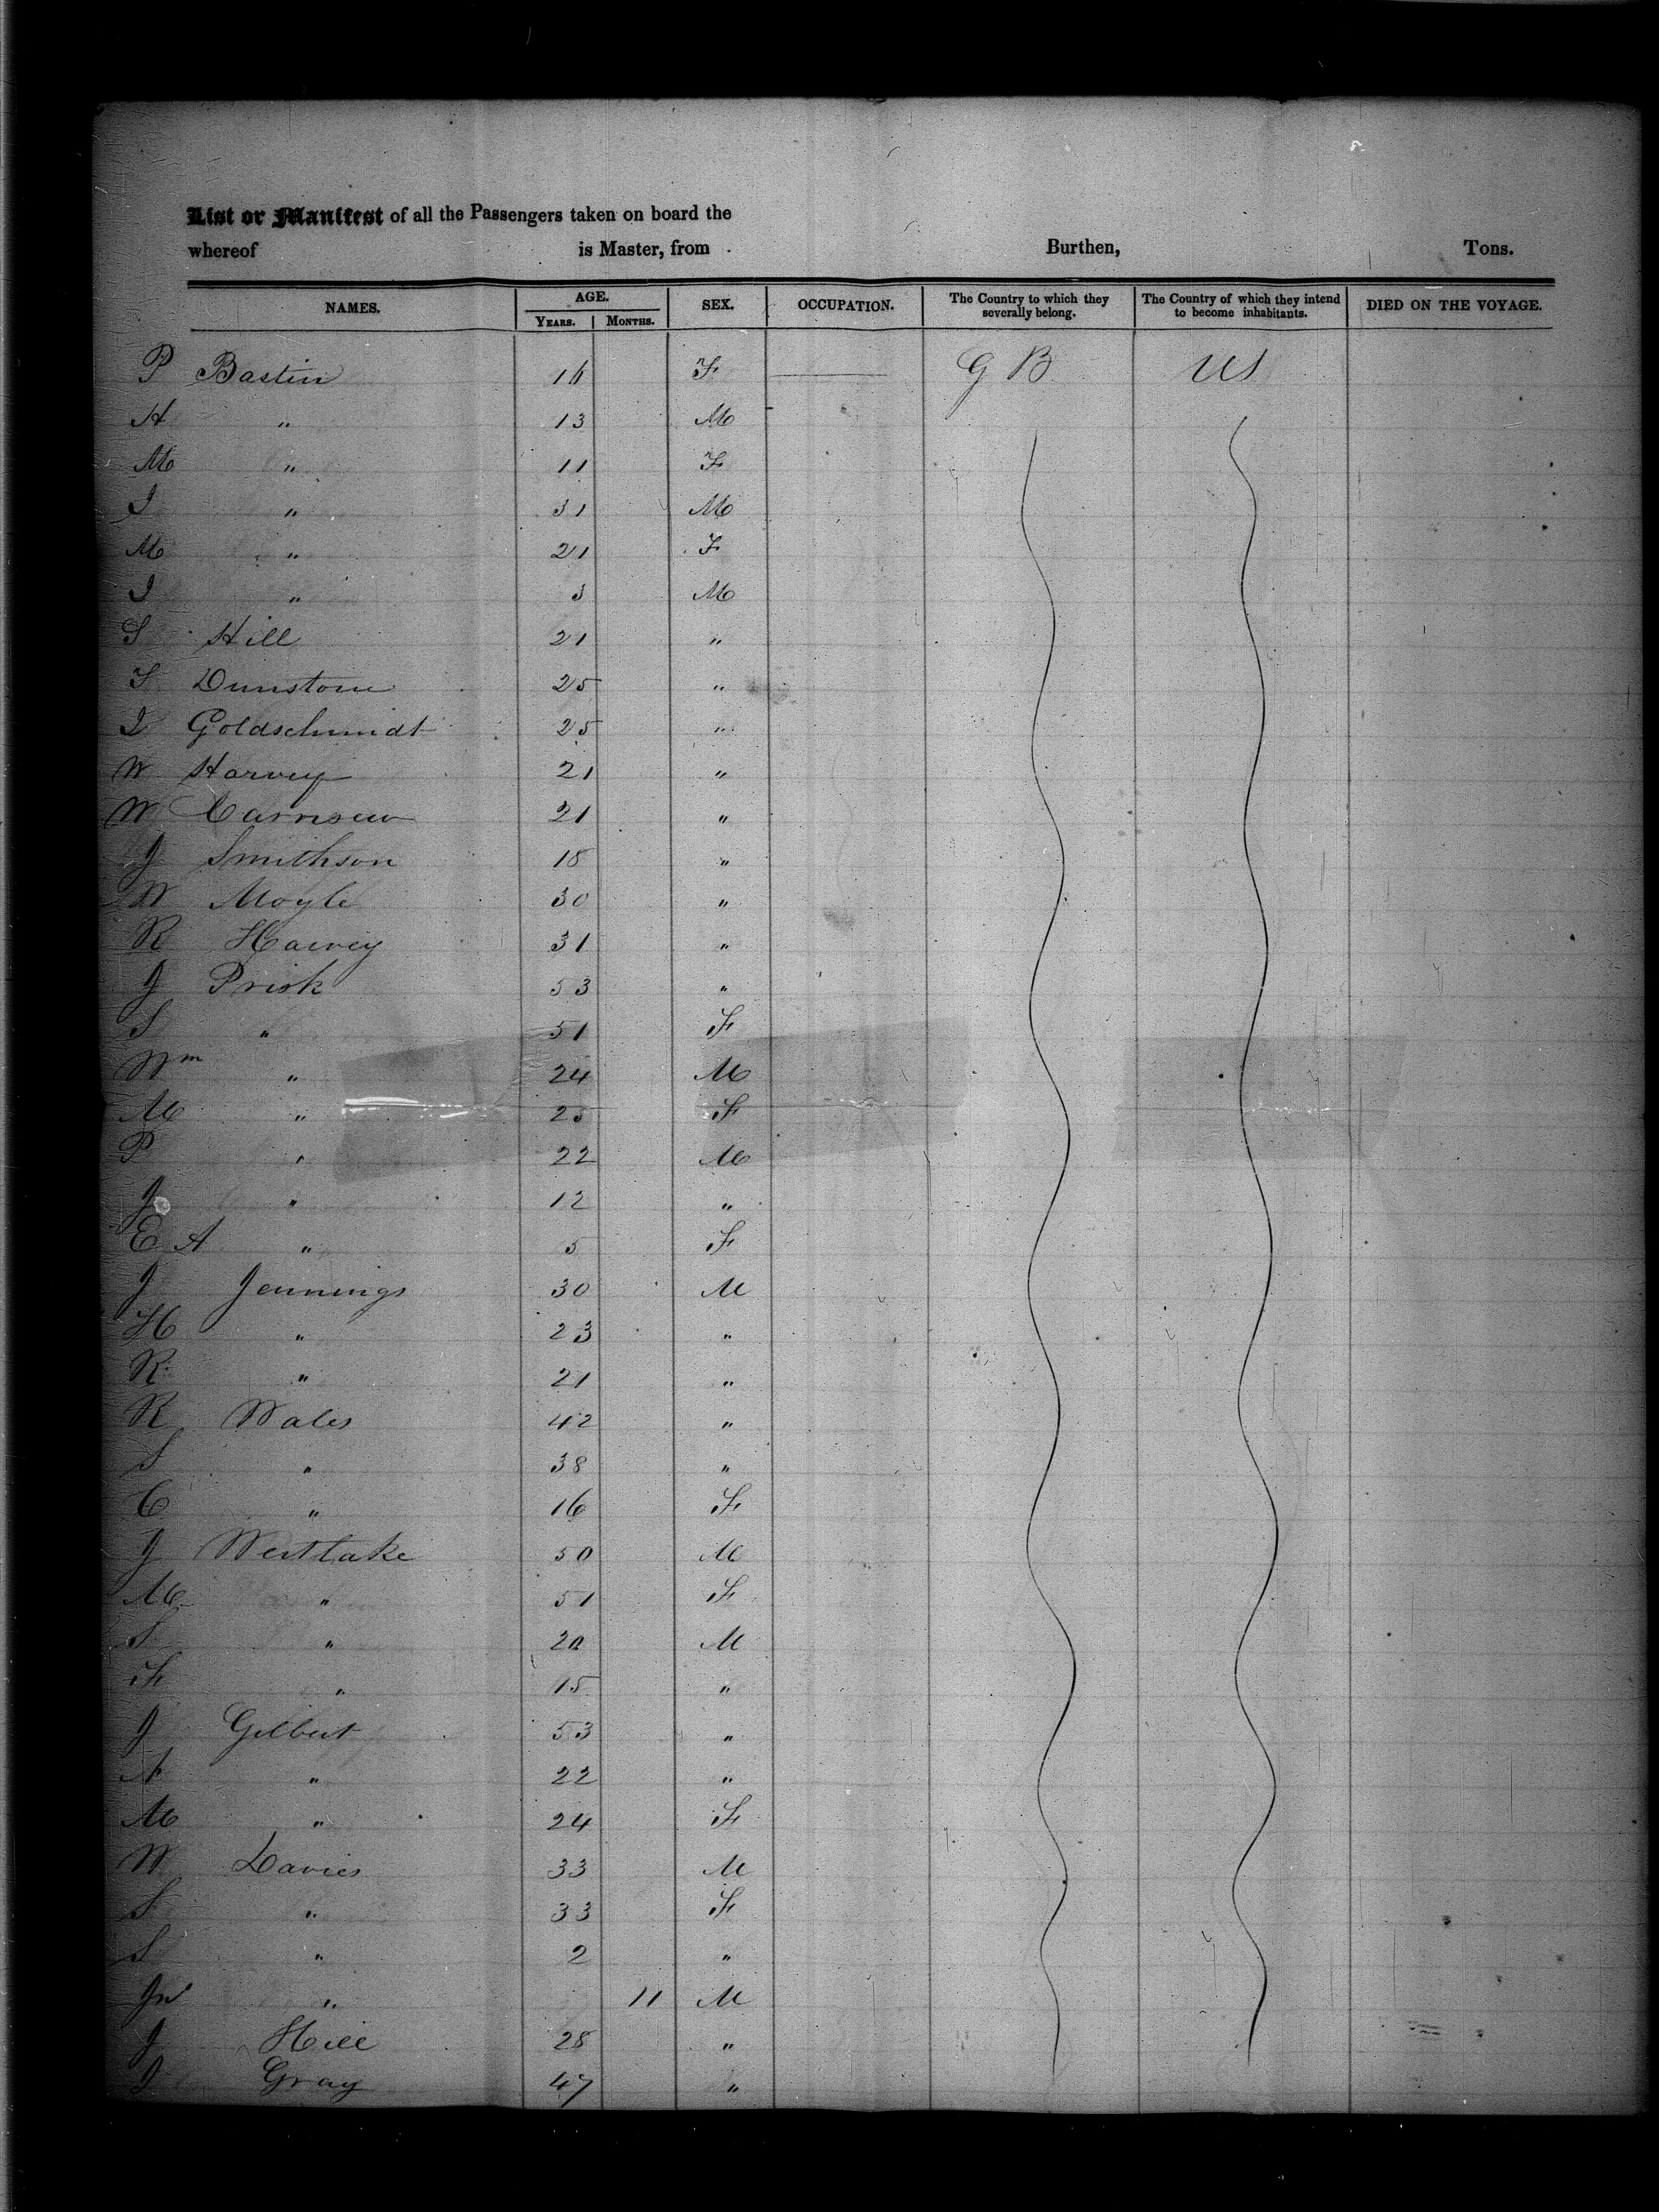 List or Manifest of all the Passengers taken on board the
whereof is Master, from Burthen, Tons.
NAMES. AGE. SEX. OCCUPATION. The Country to which they severally belong. The Country of which they intend to become inhabitants. DIED ON THE VOYAGE.
YEARS. MONTHS.
P Bastin 16 F G B US
H " 13 M
M " 11 F
J " 31 M
M " 21 F
J " 3 M
S Hill 21 "
F Dunstone 25 "
I Goldschmidt 25 "
W Harvey 21 "
W Carnsew 21 "
J Smithson 18 "
W Moyle 30 "
R Harvey 31 "
J Prisk 53 "
S " 51 F
Wm " 24 M
M " 25 F
P " 22 M
J " 12 "
E A " 5 F
J Jennings 30 M
H " 23 "
R " 21 "
R Wales 42 "
S " 38 "
C " 16 F
J Westlake 50 M
M " 51 F
S " 20 M
F " 15 "
J Gilbert 53 "
A " 22 "
M " 24 F
W Davies 33 M
S " 33 F
S " 2 "
Jn " 11 M
J Hill 28 "
J Gray 47 "